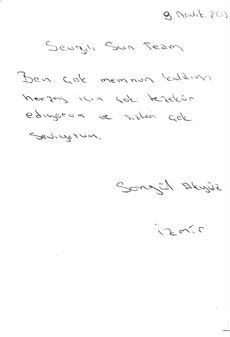 9 Aralık 2013
Sevgili Sun Team
Ben çok memnun kaldım
herşey için çok teşekür
ediyorum ve sizleri çok
seviyorum.
Songül Akyüz
izmir